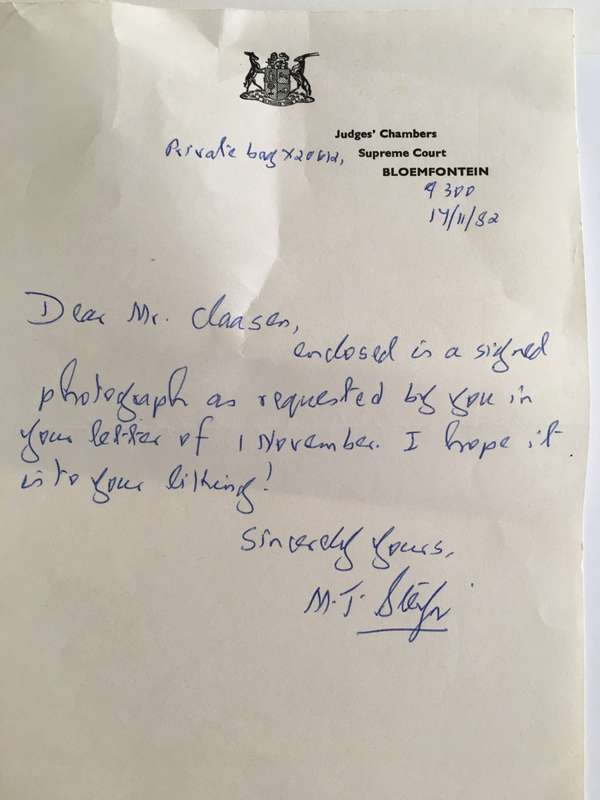 Judges' Chambers
Private bag X20612, Supreme Court
BLOEMFONTEIN
9300
17/11/82
Dear Mr. Claasen,
enclosed is a signed
photograph as requested by you in
your letter of 1 November. I hope it
is to your likking!
Sincerely yours,
M.T. Steyn